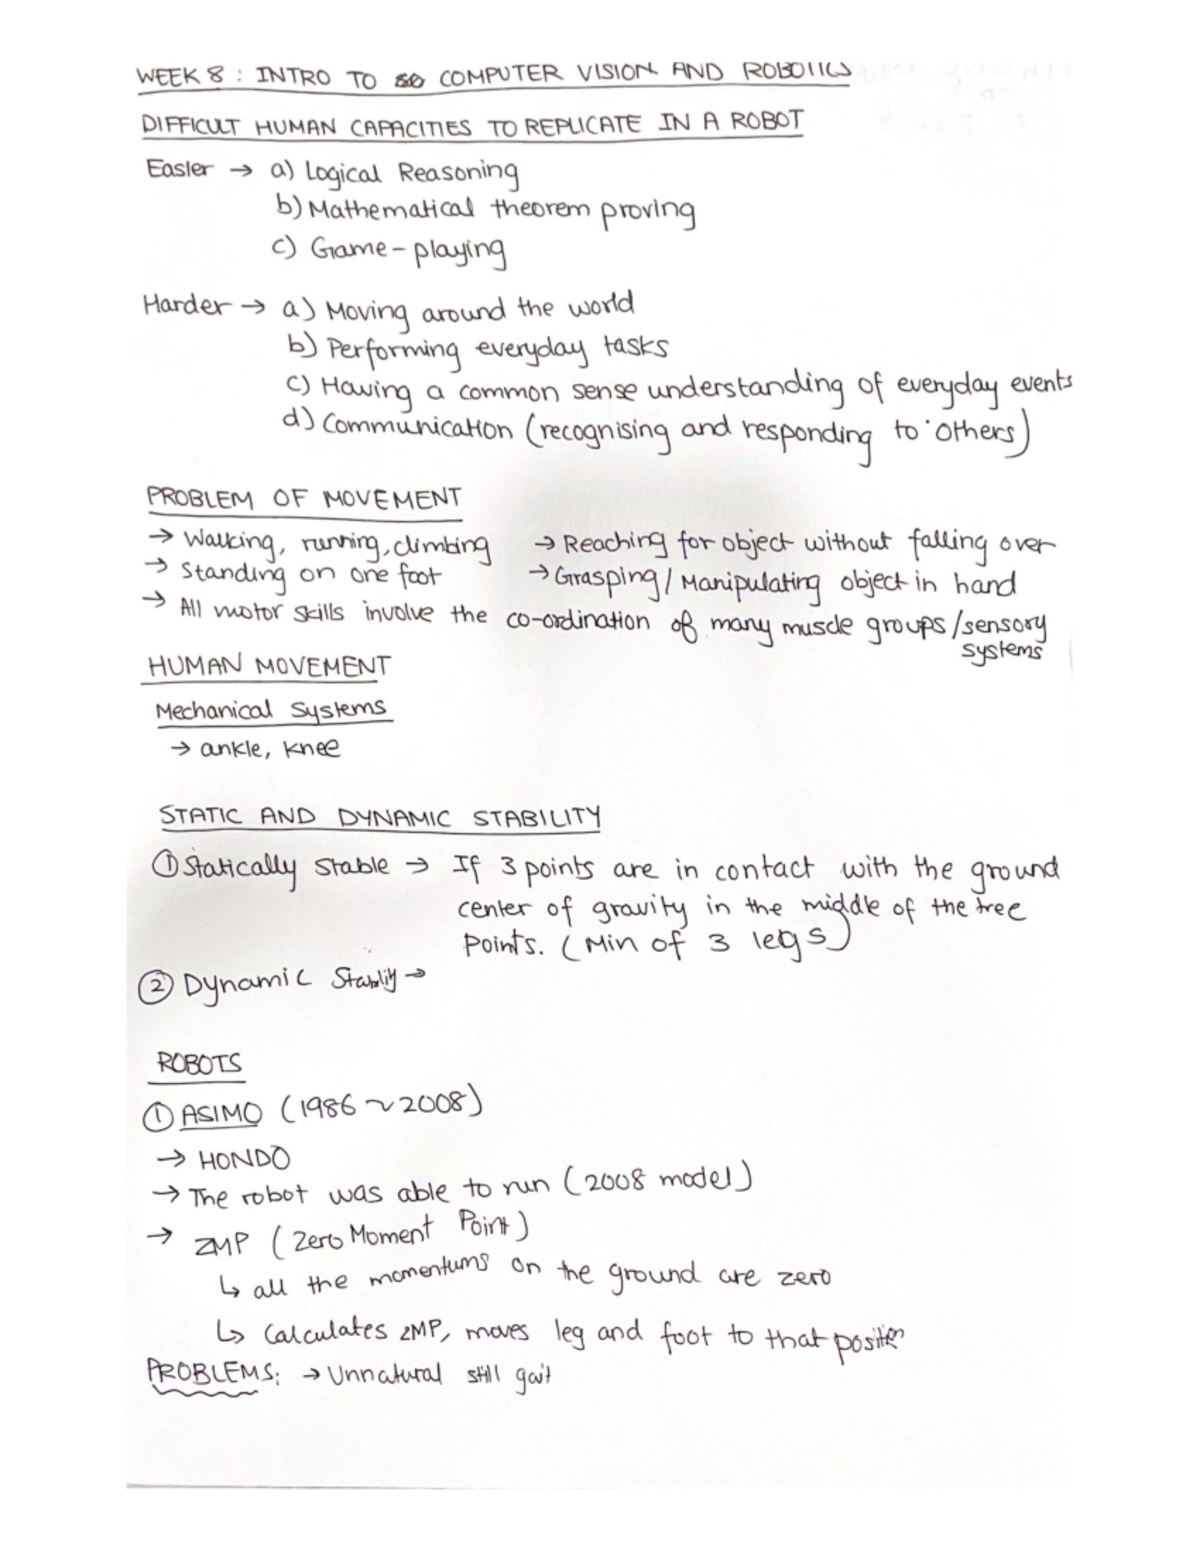 WEEK 8 : INTRO TO COMPUTER VISION AND ROBOTICS
DIFFICULT HUMAN CAPACITIES TO REPLICATE IN A ROBOT
Easier → a) Logical Reasoning
b) Mathematical theorem proving
c) Game-playing
Harder → a) Moving around the world
b) Performing everyday tasks
c) Having a common sense understanding of everyday events
d) Communication (recognising and responding to others)
PROBLEM OF MOVEMENT
→ Walking, running, climbing → Reaching for object without falling over
→ Standing on one foot → Grasping / Manipulating object in hand
→ All motor skills involve the co-ordination of many muscle groups/sensory
systems
HUMAN MOVEMENT
Mechanical Systems
→ ankle, knee
STATIC AND DYNAMIC STABILITY
① Statically Stable → If 3 points are in contact with the ground
center of gravity in the middle of the tree
points. (Min of 3 legs)
② Dynamic Stability →
ROBOTS
① ASIMO (1986 ~ 2008)
→ HONDO
→ The robot was able to run (2008 model)
→ ZMP (Zero Moment Point)
↳ all the momentums on the ground are zero
↳ Calculates ZMP, moves leg and foot to that position
PROBLEMS: → Unnatural still gait